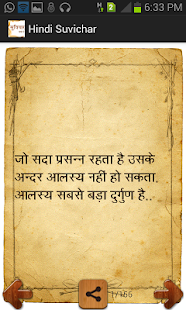 6:33 PM
Hindi Suvichar
जो सदा प्रसन्न रहता है उसके
अन्दर आलस्य नहीं हो सकता.
आलस्य सबसे बड़ा दुर्गुण है..